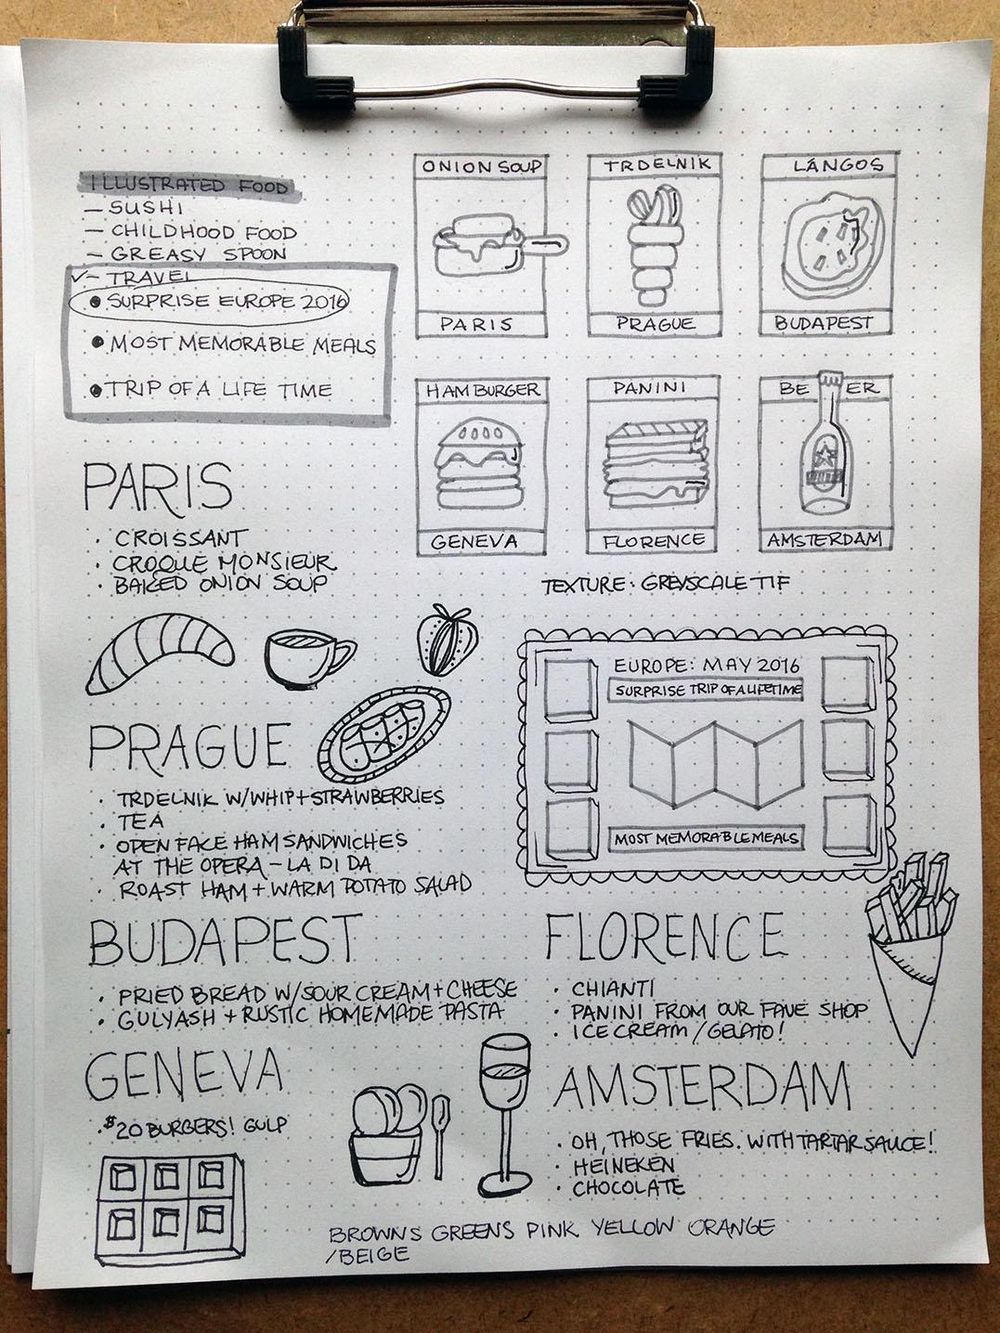 ILLUSTRATED FOOD
– SUSHI
– CHILDHOOD FOOD
– GREASY SPOON
✓– TRAVEL
• SURPRISE EUROPE 2016
• MOST MEMORABLE MEALS
• TRIP OF A LIFE TIME
ONION SOUP
PARIS
TRDELNIK
PRAGUE
LÁNGOS
BUDAPEST
HAMBURGER
GENEVA
PANINI
FLORENCE
BEER
AMSTERDAM
TEXTURE: GREYSCALE TIF
PARIS
· CROISSANT
· CROQUE MONSIEUR
· BAKED ONION SOUP
EUROPE: MAY 2016
SURPRISE TRIP OF A LIFETIME
MOST MEMORABLE MEALS
PRAGUE
· TRDELNIK W/WHIP+STRAWBERRIES
· TEA
· OPEN FACE HAM SANDWICHES
AT THE OPERA – LA DI DA
· ROAST HAM + WARM POTATO SALAD
BUDAPEST
· FRIED BREAD W/SOUR CREAM + CHEESE
· GULYASH + RUSTIC HOMEMADE PASTA
FLORENCE
· CHIANTI
· PANINI FROM OUR FAVE SHOP
· ICE CREAM / GELATO!
GENEVA
· $20 BURGERS! GULP
AMSTERDAM
· OH, THOSE FRIES. WITH TARTAR SAUCE!
· HEINEKEN
· CHOCOLATE
BROWNS GREENS PINK YELLOW ORANGE
/BEIGE